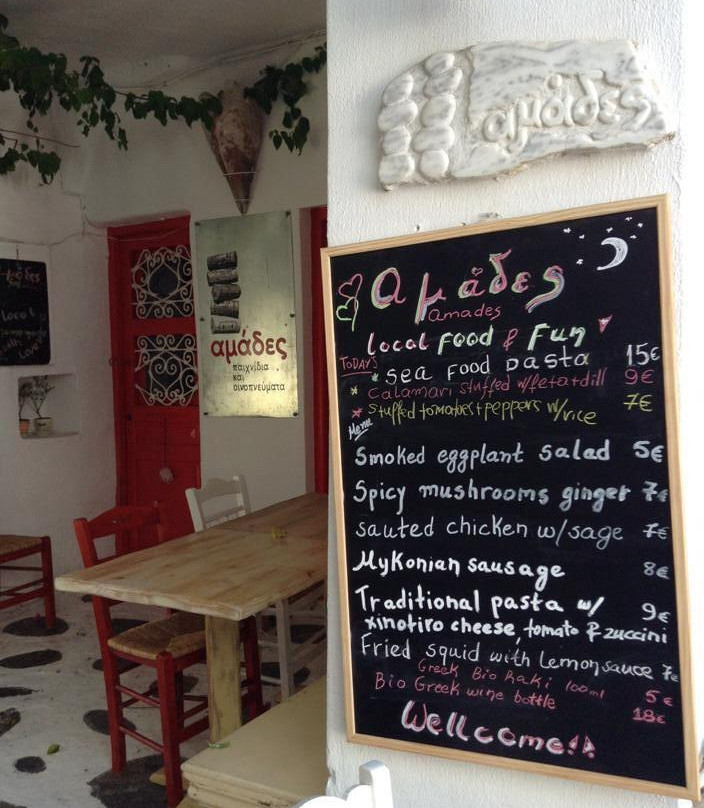 αμάδες
αμάδες
παιχνίδια
και
οινοπνεύματα
local
αμάδες
amades
local Food & Fun
TODAY'S
* SEA FOOD PASTA 15€
* CALAMARI STUFFED W/feta+dill 9€
* stuffed tomatoes+peppers w/rice 7€
Menu
Smoked eggplant salad 5€
Spicy mushrooms ginger 7€
sauted chicken w/sage 7€
Mykonian sausage 8€
Traditional pasta w/ 9€
xinotiro cheese, tomato & zuccini
Fried squid with Lemon sauce 7€
Greek Bio Raki 100ml 5€
Bio Greek wine bottle 18€
Wellcome!!